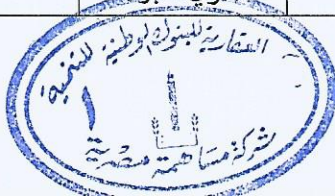 العقارية للبنوك الوطنية للتنمية
شركة مساهمة مصرية